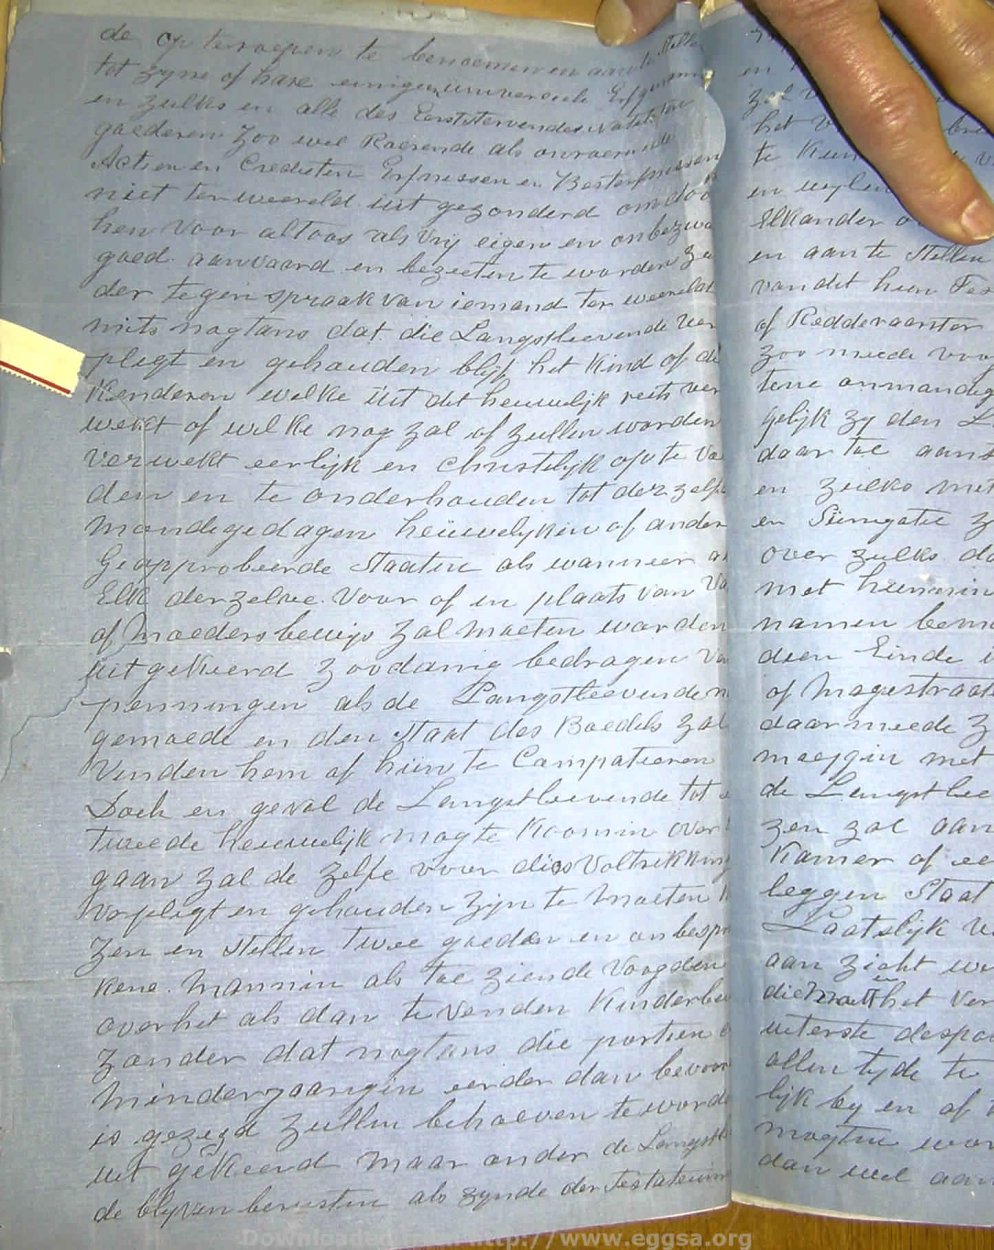 de op te roepen te benoemen en aan te Stelle
tot zyne of hare eenige universeele Erfgenaam
en zulks en alle des Eerststervendes natelaten
goederen Zoo wel Roerende als onroerende
Actien en Credieten Erfnessen en Besterfnessen
niet ter weereld uit gezonderd om door
hen voor altoos als vrij eigen en onbezwa
goed aanvaard en bezeeten te worden Zo
der tegenspraak van iemand ter weereld
mits nogtans dat die Langstleevende Ver
pligt en gehouden blijf het kind of de
Kenderen welke uit dit heuwelijk reets ver
wekt of welke nog zal of zullen worden
verwekt eerlijk en Christelijk op te vo
den en te onderhouden tot derzelfe
mondige dagen heuwelyken of ander
Geapprobeerde Staaten als wanneer a
Elk derzelve voor of in plaats van Va
of moeders bewijs zal moeten worden
uitgekeerd zoodanig bedragen Va
penningen als de Langstleevende n
gemoede en den Staat des Boedels zal
Venden hem of hun te Competeeren
Doch en geval de Langstleevende tot
tweede heuwelijk mogte koomen over
gaan zal de zelfe voor dies voltrekking
verpligt en gehouden zijn te moeten k
zen en Stellen twee goeden en onbespr
kene mannen als toe ziende Voogden
over het als dan te venden kinderbe
zonder dat nogtans die portien
minderjaarigen eerder dan bevoor
is gezegd zullen behoeven te worde
uit gekeerd maar onder de Langstle
de blyven berusten als zynde der Testateuren
en
het V
te kun
en wylen
Elkander o
en aan te Stellen
van dit hun Tes
of Redderaar
Zoo meede voog
tene onmondig
gelijk zy den L
daar toe aanst
en zulks met
en Surrogatie z
over zulks da
met hunnen
namen beno
dien Einde
of Magestraat
daar meede z
moeggen met
de Langstlee
zen zal aan
Kamer of ee
leggen Staat
Laatelijk w
aan zicht wo
die het ver
uiterste despos
allen tyde te
lijk by en of
mogten wor
dan wel aan
Downloaded from http://www.eggsa.org